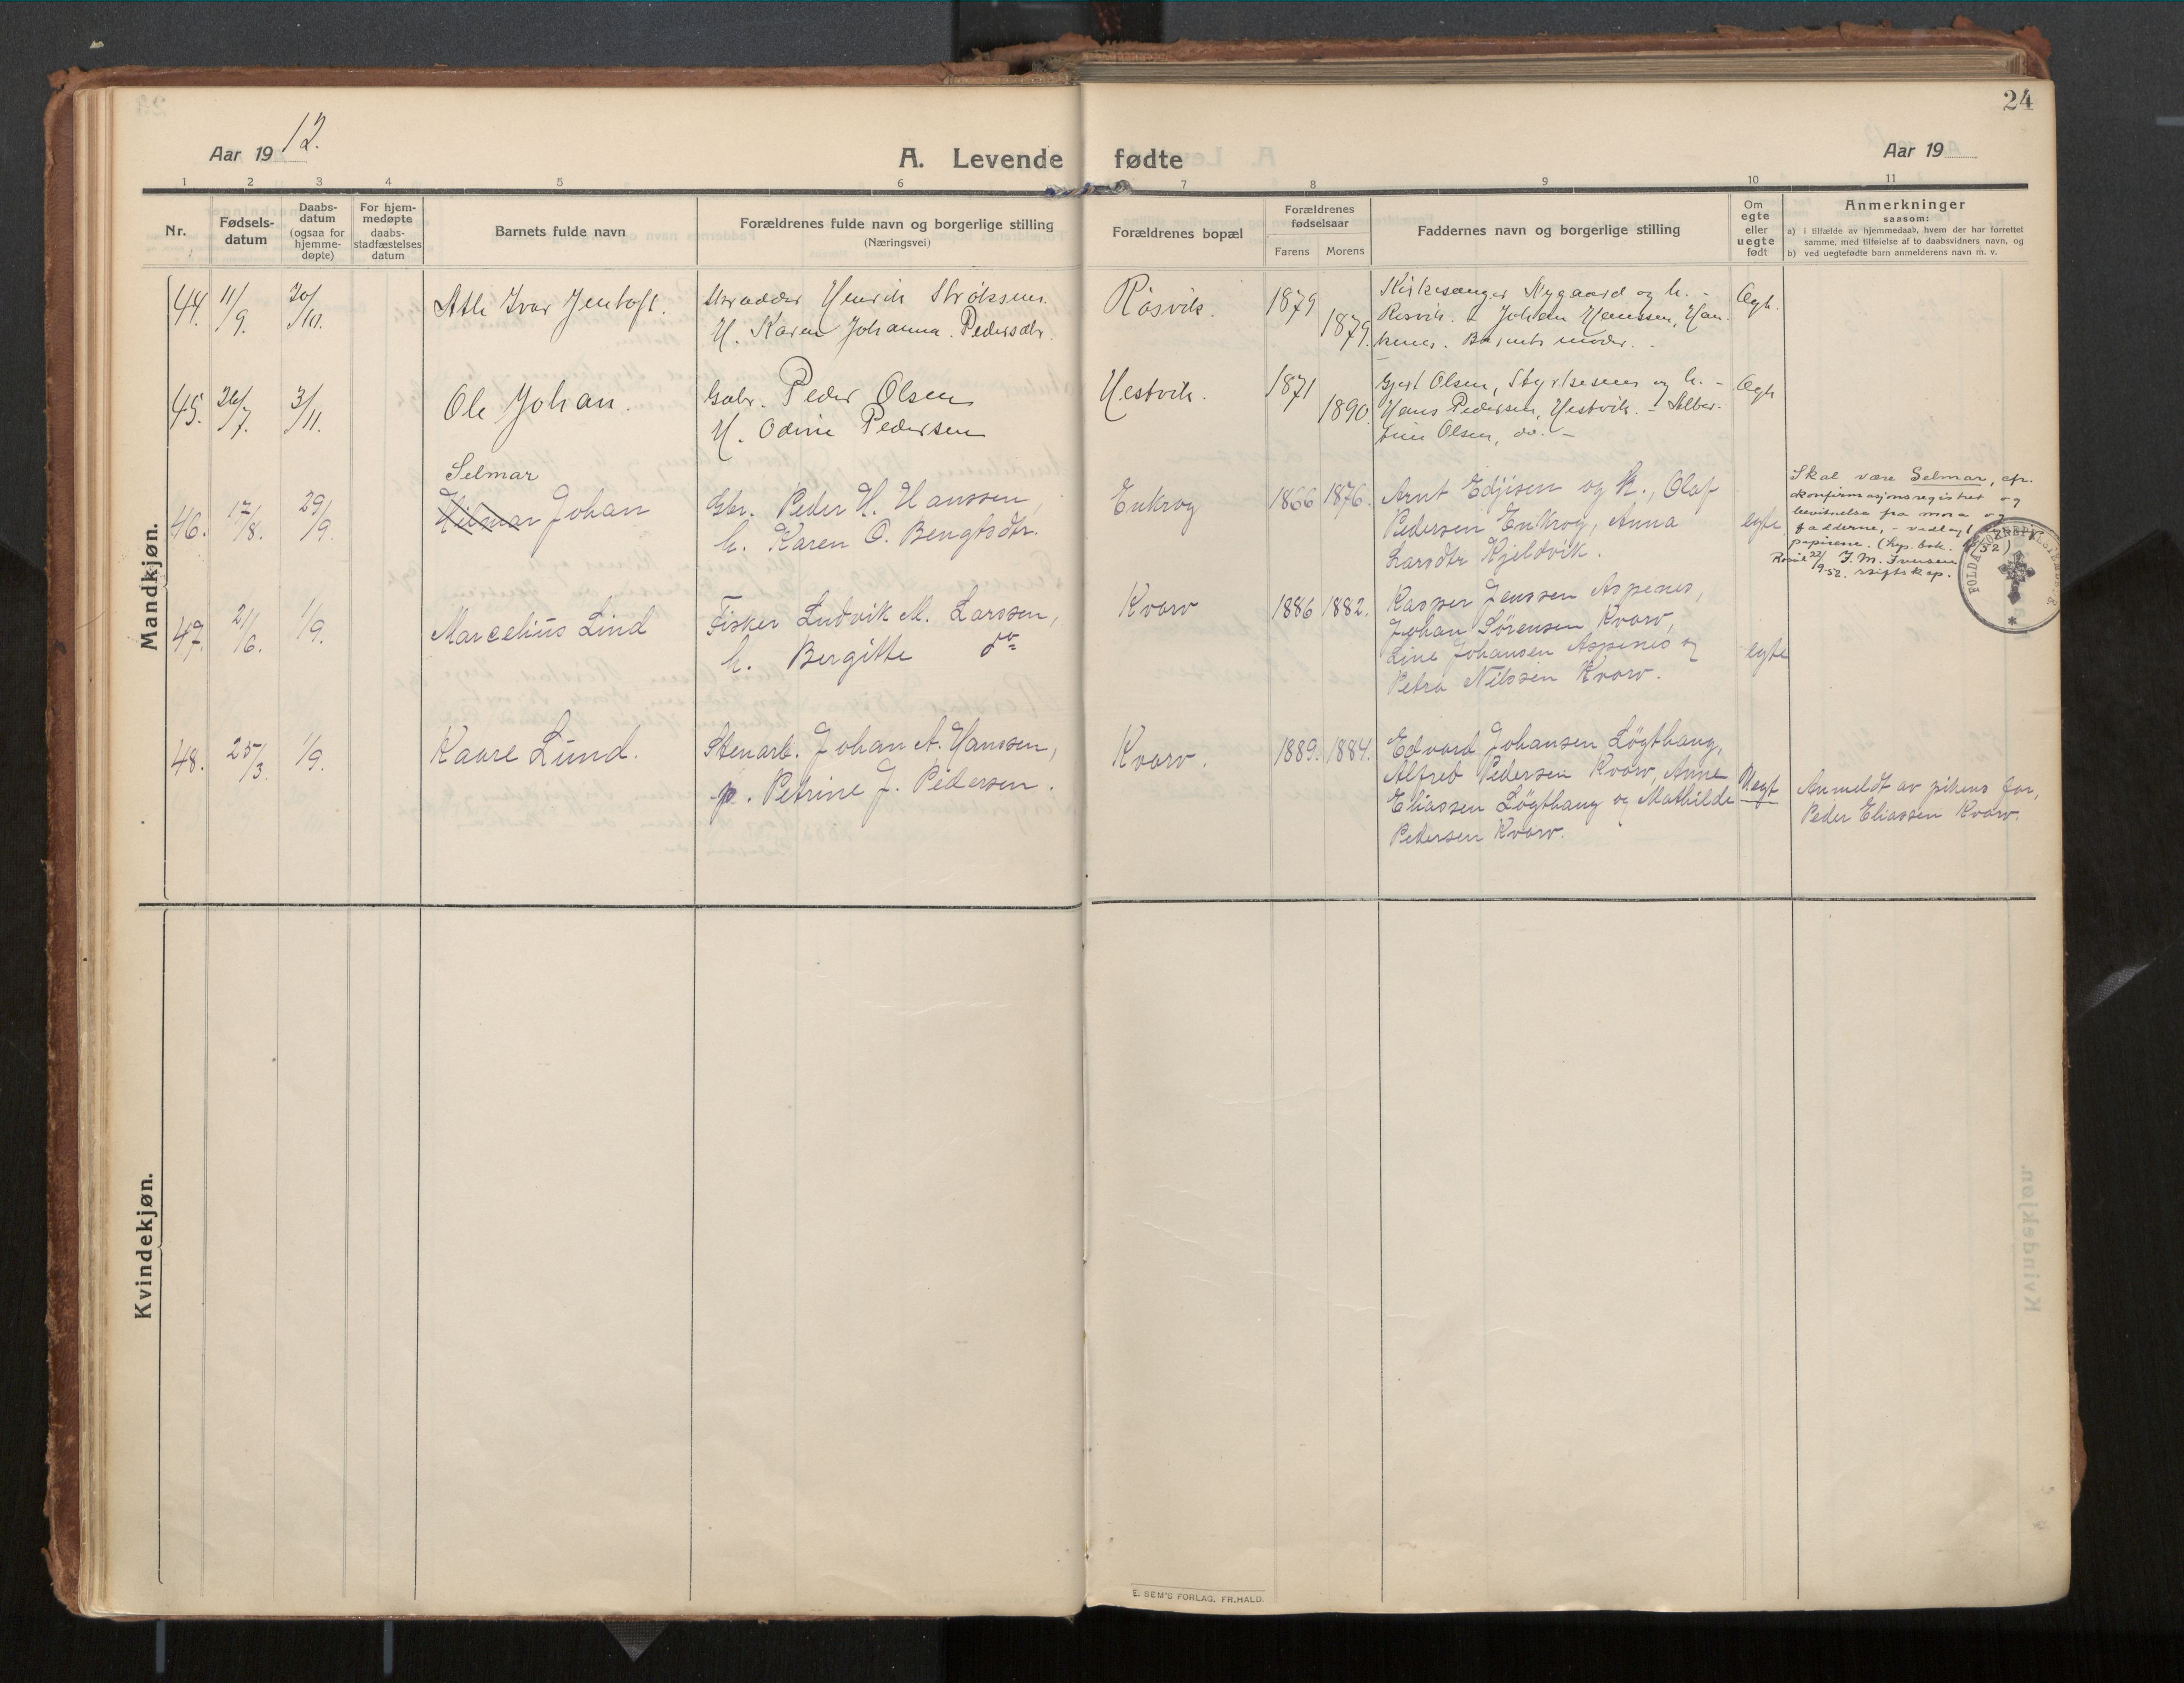 24
Aar 19 12.
A. Levende fødte
Aar 19
1 2 3 4 5 6 7 8 9 10 11
Nr.
Fødsels-
datum
Daabs-
datum
(ogsaa for
hjemme-
døpte)
For hjem-
medøpte
daabs-
stadfæstelses
datum
Barnets fulde navn
Forældrenes fulde navn og borgerlige stilling
(Næringsvei)
Forældrenes bopæl
Forældrenes
fødselsaar
Farens Morens
Faddernes navn og borgerlige stilling
Om
egte
eller
uegte
født
Anmerkninger
saasom:
a) i tilfælde av hjemmedaab, hvem der har forrettet
samme, med tilføielse af to daabsvidners navn, og
b) ved uegtefødte barn anmelderens navn m. v.
Mandkjøn.
44. 11/9. 20/10.
Atle Ivar Jentoft.
Skrædder Henrik Strøksnes.
H. Karen Johanna Pedersdr.
Røsvik.
1879
1879.
Kirkesanger Nygaard og h. -
Røsvik. - Johan Hanssen, Han-
kenes. Barnets moder. -
Ægte.
45. 26/7. 3/11.
Ole Johan.
Gabr. Peder Olsen
H. Odine Pedersen
Hestvik.
1871
1890.
Gjert Olsen, Styrkesnes og h. -
Hans Pedersen, Hestvik. - Alber-
tine Olsen, do. -
Ægte
46. 17/8. 29/9.
Selmar
Hilmar Johan
Gbr. Peder H. Hanssen,
h. Karen O. Bengtsdtr.
Enkrog
1866 1876.
Arnt Edjisen og h., Olaf
Pedersen Enkrog, Anna
Larsdtr Kjeldvik.
egte
Skal være Selmar, efr.
konfirmasjonsregistret og
bevitnelse fra mora og
fadderne, - vedlagt
papirene. (kop. bok. /52)
Røsvik 22/9-52. J. M. Iversen
stiftskap.
FOLDA SOKNEPRESTEMBETE
47. 21/6. 1/9.
Marcelius Lind
Fisker Ludvik M. Larssen,
h. Bergitte do
Kvarv
1886 1882.
Kasper Jenssen Aspenes,
Johan Sørensen Kvarv,
Line Johansen Aspenes og
Petra Nilssen Kvarv.
egte
48. 25/3. 1/9.
Kaare Lund.
Stenarb. Johan A. Hanssen,
p. Petrine J. Pedersen.
Kvarv.
1889. 1884.
Edvard Johansen Løgthaug,
Alfred Pedersen Kvarv, Anne
Eliassen Løgthaug og Mathilde
Pedersen Kvarv.
Uegt
Anmeldt av pikens far,
Peder Eliassen Kvarv.
Kvindekjøn.
E. SEM'S FORLAG, FR.HALD.